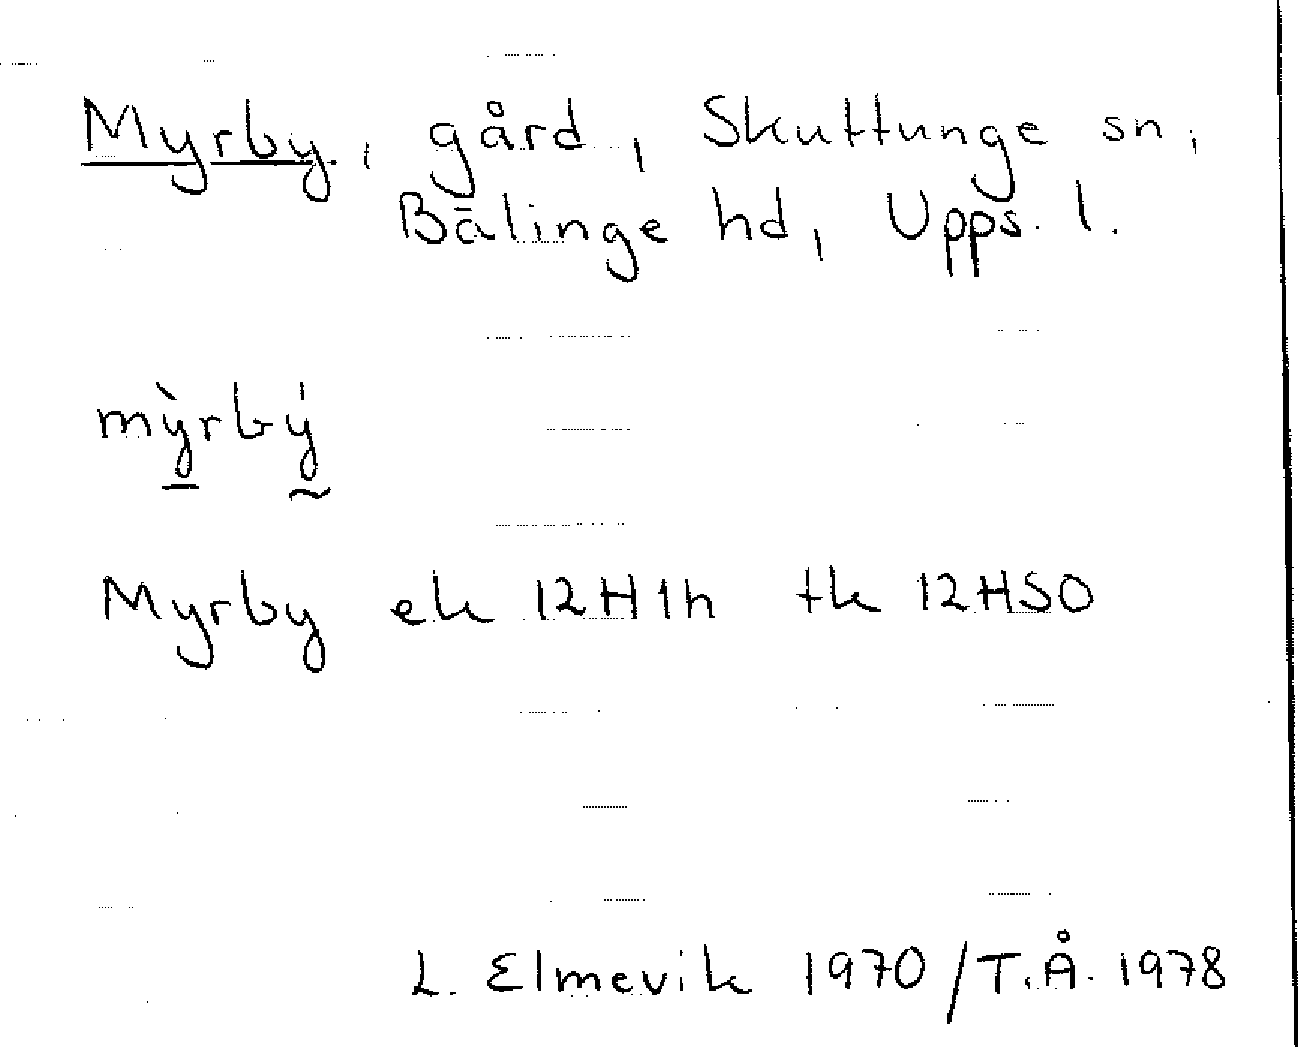 Myrby, gård, Skuttunge sn,
Bälinge hd, Upps. l.
mỳrbý
Myrby ek 12H1h tk 12HSO
L. Elmevik 1970/T.Å. 1978